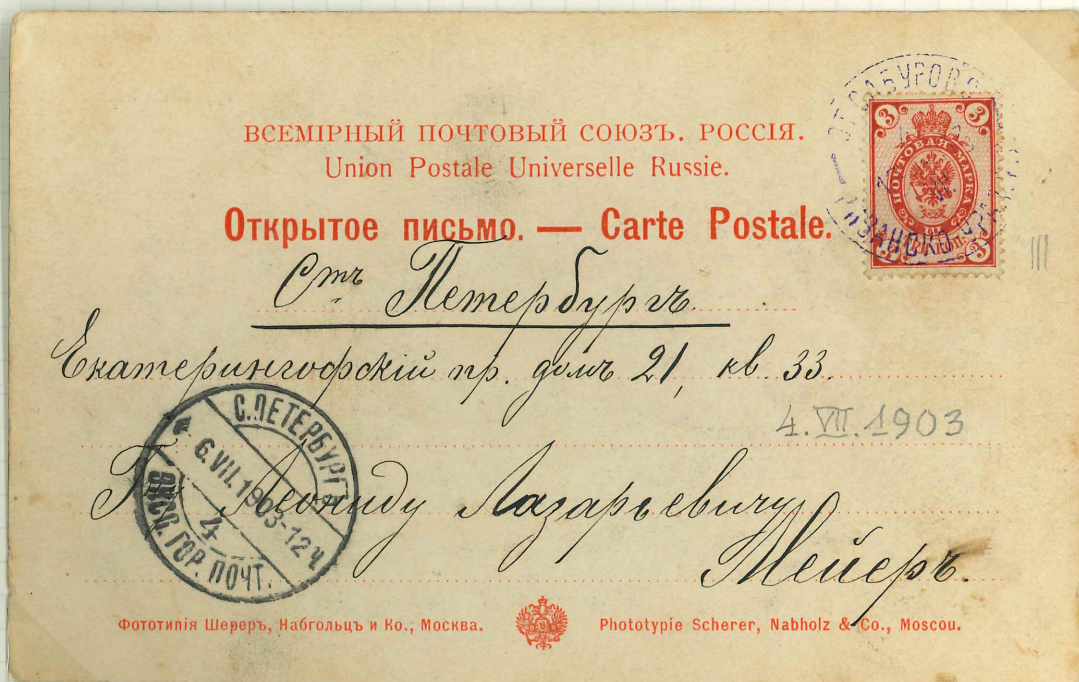 ВСЕМІРНЫЙ ПОЧТОВЫЙ СОЮЗЪ. РОССІЯ.
Union Postale Universelle Russie.
Открытое письмо. — Carte Postale.
3 3
ПОЧТОВАЯ МАРКА
3 3
Стъ Петербургъ.
Екатерингофскій пр. домъ 21, кв. 33.
4.VII.1903
С.ПЕТЕРБУРГЪ
6.VII.1903-12Ч.
4
ЭКСП. ГОР. ПОЧТ.
Леониду Лазарьевичу
Мейеръ.
Фототипія Шереръ, Набгольцъ и Ко., Москва.
Phototypie Scherer, Nabholz & Co., Moscou.